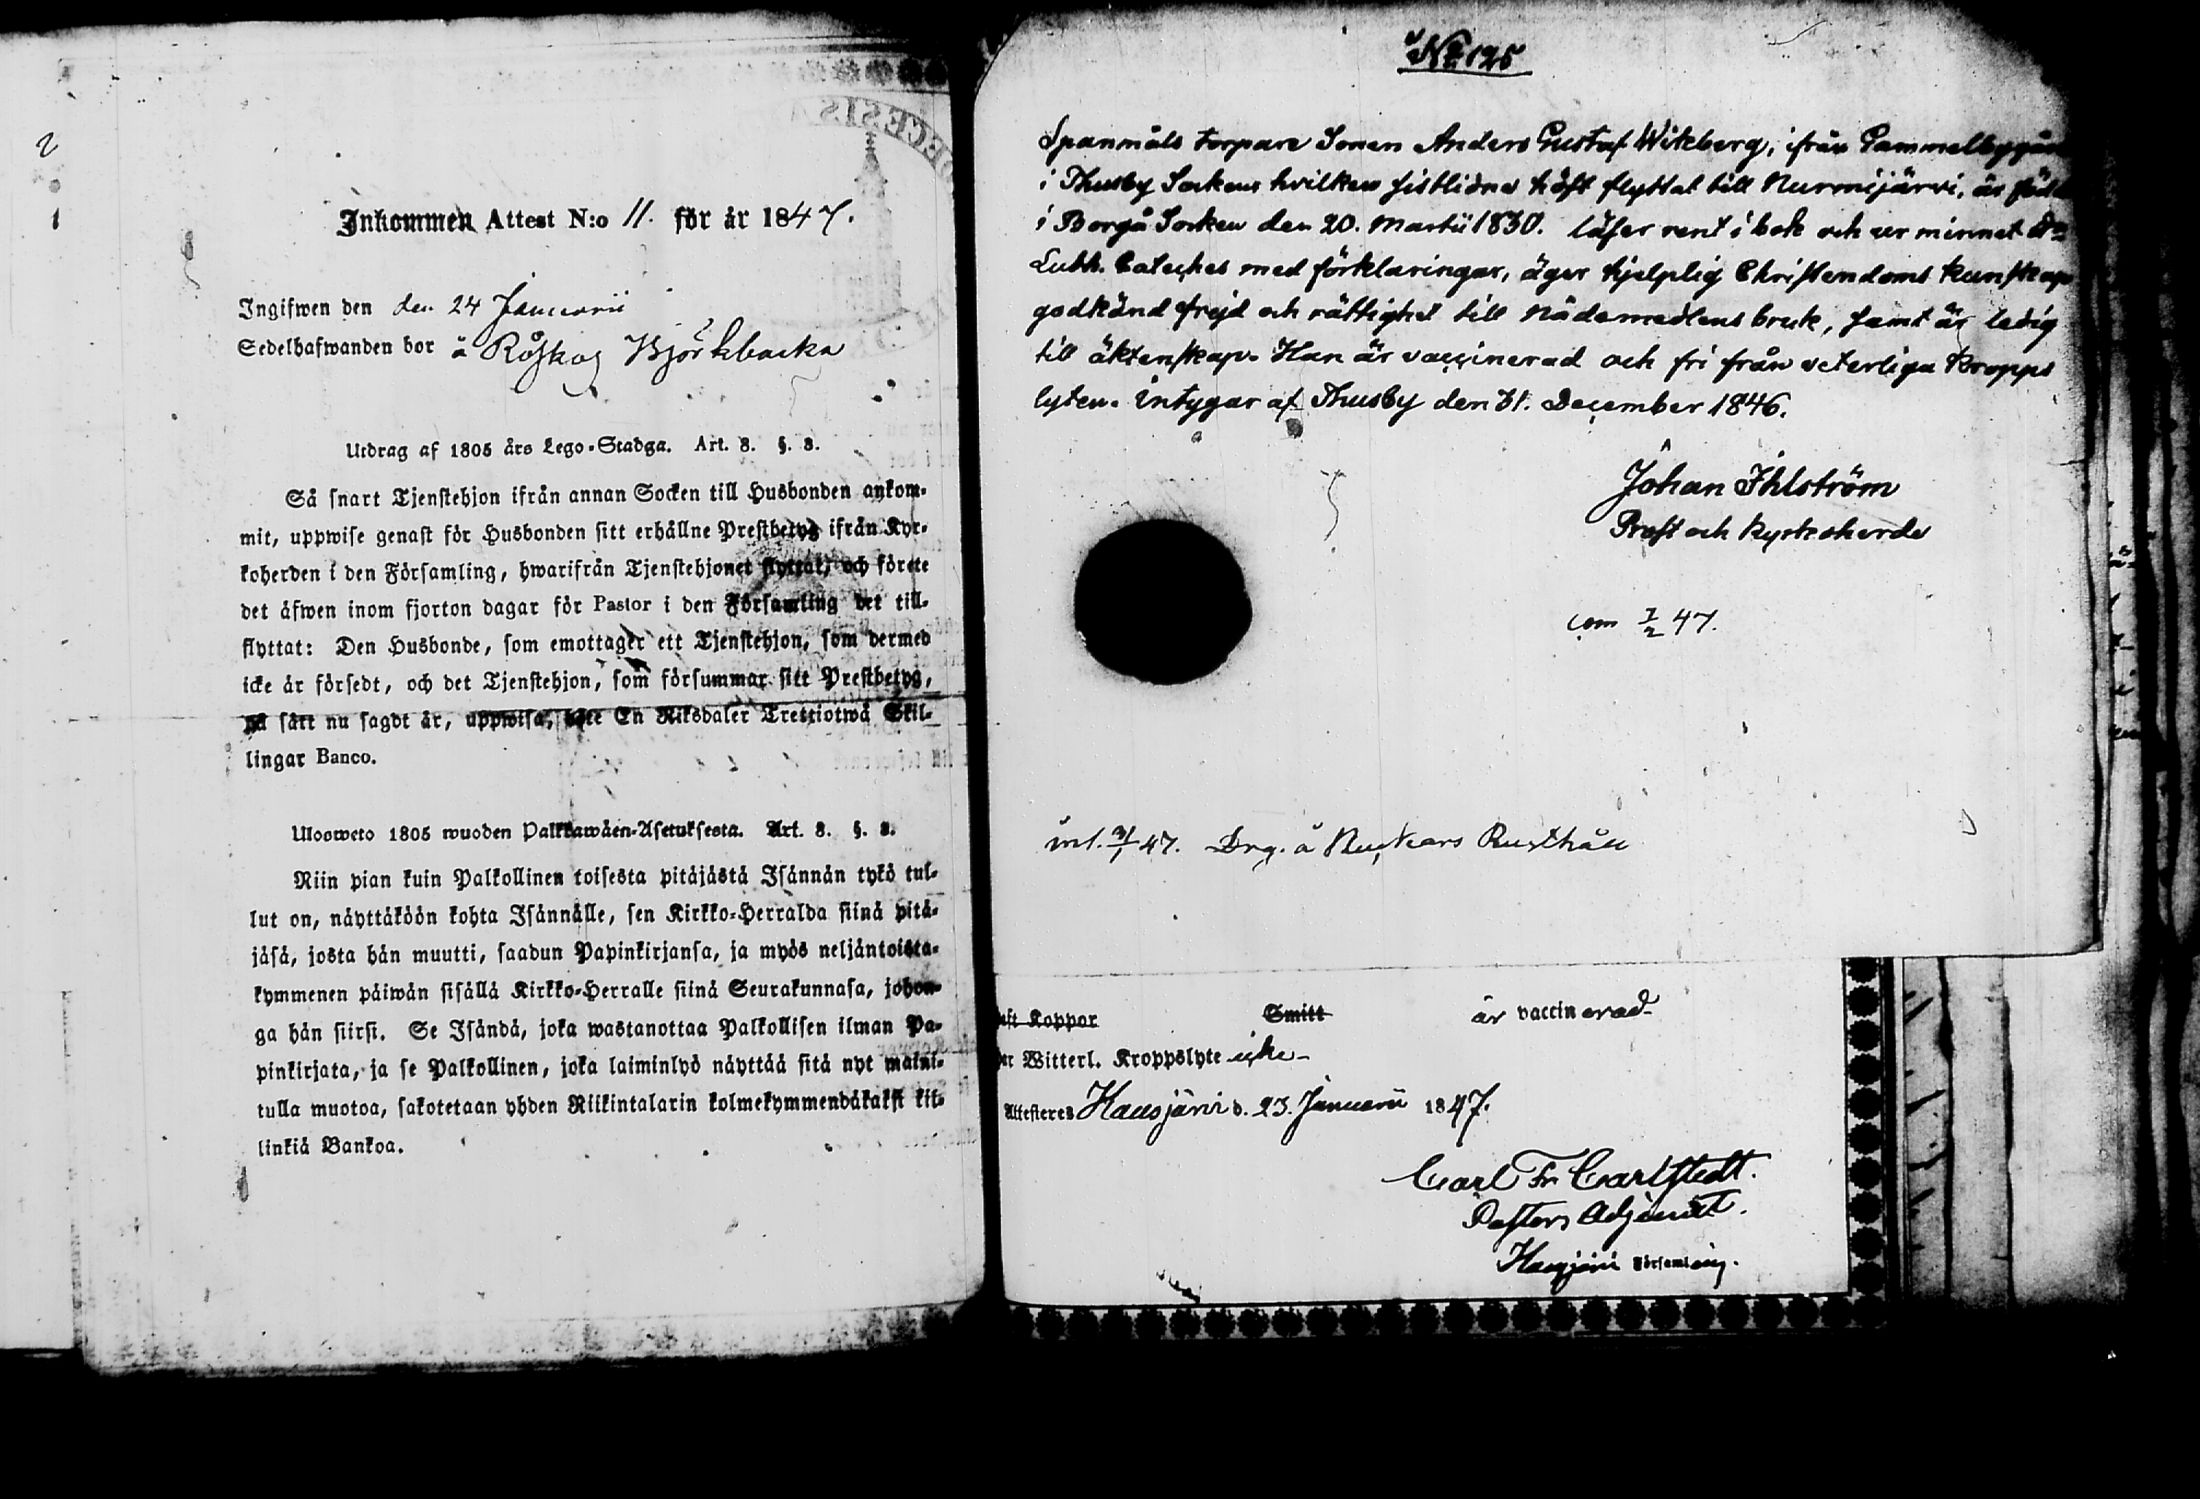 Inkommen Attest N:o 11. för år 1847.
Ingifwen den den 24 Januarii
Sedelhafwanden bor å Råskog Björkbacka
Utdrag af 1805 års Lego-Stadga. Art. 8. §. 3.
Så snart Tjenstehjon ifrån annan Socken till Husbonden ankom-
mit, uppwise genast för Husbonden sitt erhållne Prestbetyg ifrån Kyr-
koherden i den Församling, hwarifrån Tjenstehjonet flyttat, och förete
det äfwen inom fjorton dagar för Pastor i den Församling det till-
flyttat: Den Husbonde, som emottager ett Tjenstehjon, som dermed
icke är försedt, och det Tjenstehjon, som försummar sitt Prestbetyg,
på sätt nu sagdt är, uppwisa, böte En Riksdaler Trettiotwå Skil-
lingar Banco.
Ulosweto 1805 wuoden Palkkawäen-Asetuksesta. Art. 8. §. 3.
Niin pian kuin Palkollinen toisesta pitäjästä Isännän tykö tul-
lut on, näyttäköön kohta Isännälle, sen Kirkko-Herralda siinä pitä-
jäsä, josta hän muutti, saadun Papinkirjansa, ja myös neljäntoista-
kymmenen päiwän sisällä Kirkko-Herralle siinä Seurakunnasa, johon-
ga hän siirsi. Se Isändä, joka wastanottaa Palkollisen ilman Pa-
pinkirjata, ja se Palkollinen, joka laiminlyö näyttää sitä nyt maini-
tulla muotoa, sakotetaan yhden Riikintalarin kolmekymmendäkaksi kil-
linkiä Bankoa.
№ 125
Spanmåls torpare Sonen Anders Gustaf Witzberg, ifrån Gammelbygård
i Thusby Socken hvilken sistlidne höst flyttat till Nurmijärvi, är född
i Borgå Socken den 20. Martii 1830. läser rent i bok och ur minnet
Luth. Cateches med förklaringar, äger hjelplig Christendoms kunskap
godkänd frejd och rättighet till Nådemedlens bruk, samt är ledig
till äktenskap. Han är vaccinerad och fri från veterliga kropps
lyten. intygar af Thusby den 31. December 1846.
Johan Ihlström
Prost och Kyrkoherde
com 7/2 47.
inl. 31/1 47. Drg. å Ruskars Rusthåll
Koppor Smitt är vaccinerad
Witterl. Kroppslyte icke
Attesteres Hausjärvi d. 23. Januarii 1847.
Carl Fr Carlstedt.
Pastors Adjunct.
Hausjärvi Församling.